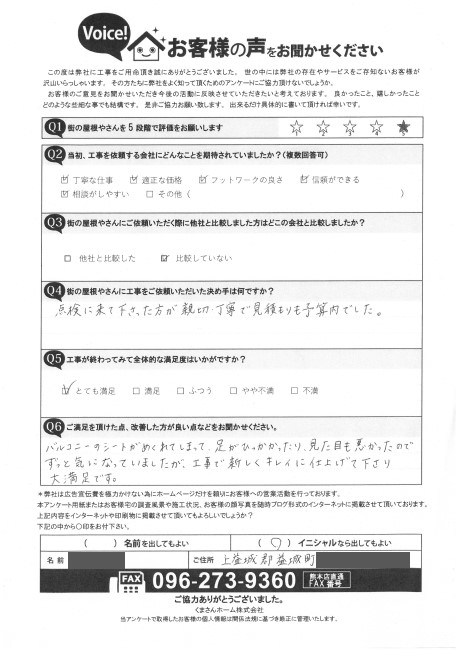 Voice! お客様の声をお聞かせください
この度は弊社に工事をご用命頂き誠にありがとうございました。世の中には弊社の存在やサービスをご存知ないお客様が
沢山いらっしゃいます。その方たちに弊社をよく知って頂くためのアンケートにご協力頂けないでしょうか。
お客様のご意見をお聞かせいただき今後の活動に反映させていただきたいと考えております。良かったこと、嬉しかったこと
どのような些細な事でも結構です。是非ご協力お願い致します。出来るだけ具体的に書いて頂ければ幸いです。
Q1 街の屋根やさんを5段階で評価をお願いします 1 2 3 4 5
Q2 当初、工事を依頼する会社にどんなことを期待されていましたか?(複数回答可)
☑ 丁寧な仕事 ☑ 適正な価格 ☑ フットワークの良さ ☑ 信頼ができる
☑ 相談がしやすい □ その他( )
Q3 街の屋根やさんにご依頼いただく際に他社と比較しました方はどこの会社と比較しましたか?
□ 他社と比較した ☑ 比較していない
Q4 街の屋根やさんに工事をご依頼いただいた決め手は何ですか?
点検に来て下さった方が親切・丁寧で見積もりも予算内でした。
Q5 工事が終わってみて全体的な満足度はいかがですか?
☑ とても満足 □ 満足 □ ふつう □ やや不満 □ 不満
Q6 ご満足を頂けた点、改善した方が良い点などをお聞かせください。
バルコニーのシートがめくれてしまって、足がひっかかったり、見た目も悪かったので
ずっと気になっていましたが、工事で新しくキレイに仕上げて下さり
大満足です。
*弊社は広告宣伝費を極力かけない為にホームページだけを頼りにお客様への営業活動を行っております。
本アンケート用紙またはお客様宅の調査風景や施工状況、お客様の顔写真を随時ブログ形式のインターネットに掲載させて頂いております。
上記内容をインターネットや印刷物に掲載させて頂いてもよろしいでしょうか?
下記の中から〇印をお付下さい。
( ) 名前を出してもよい (○) イニシャルなら出してもよい
名前 ご住所 上益城郡益城町
FAX 096-273-9360 熊本店直通 FAX番号
ご協力ありがとうございました。
くまさんホーム株式会社
当アンケートで取得したお客様の個人情報は関係法規に基づき厳正に管理いたします。